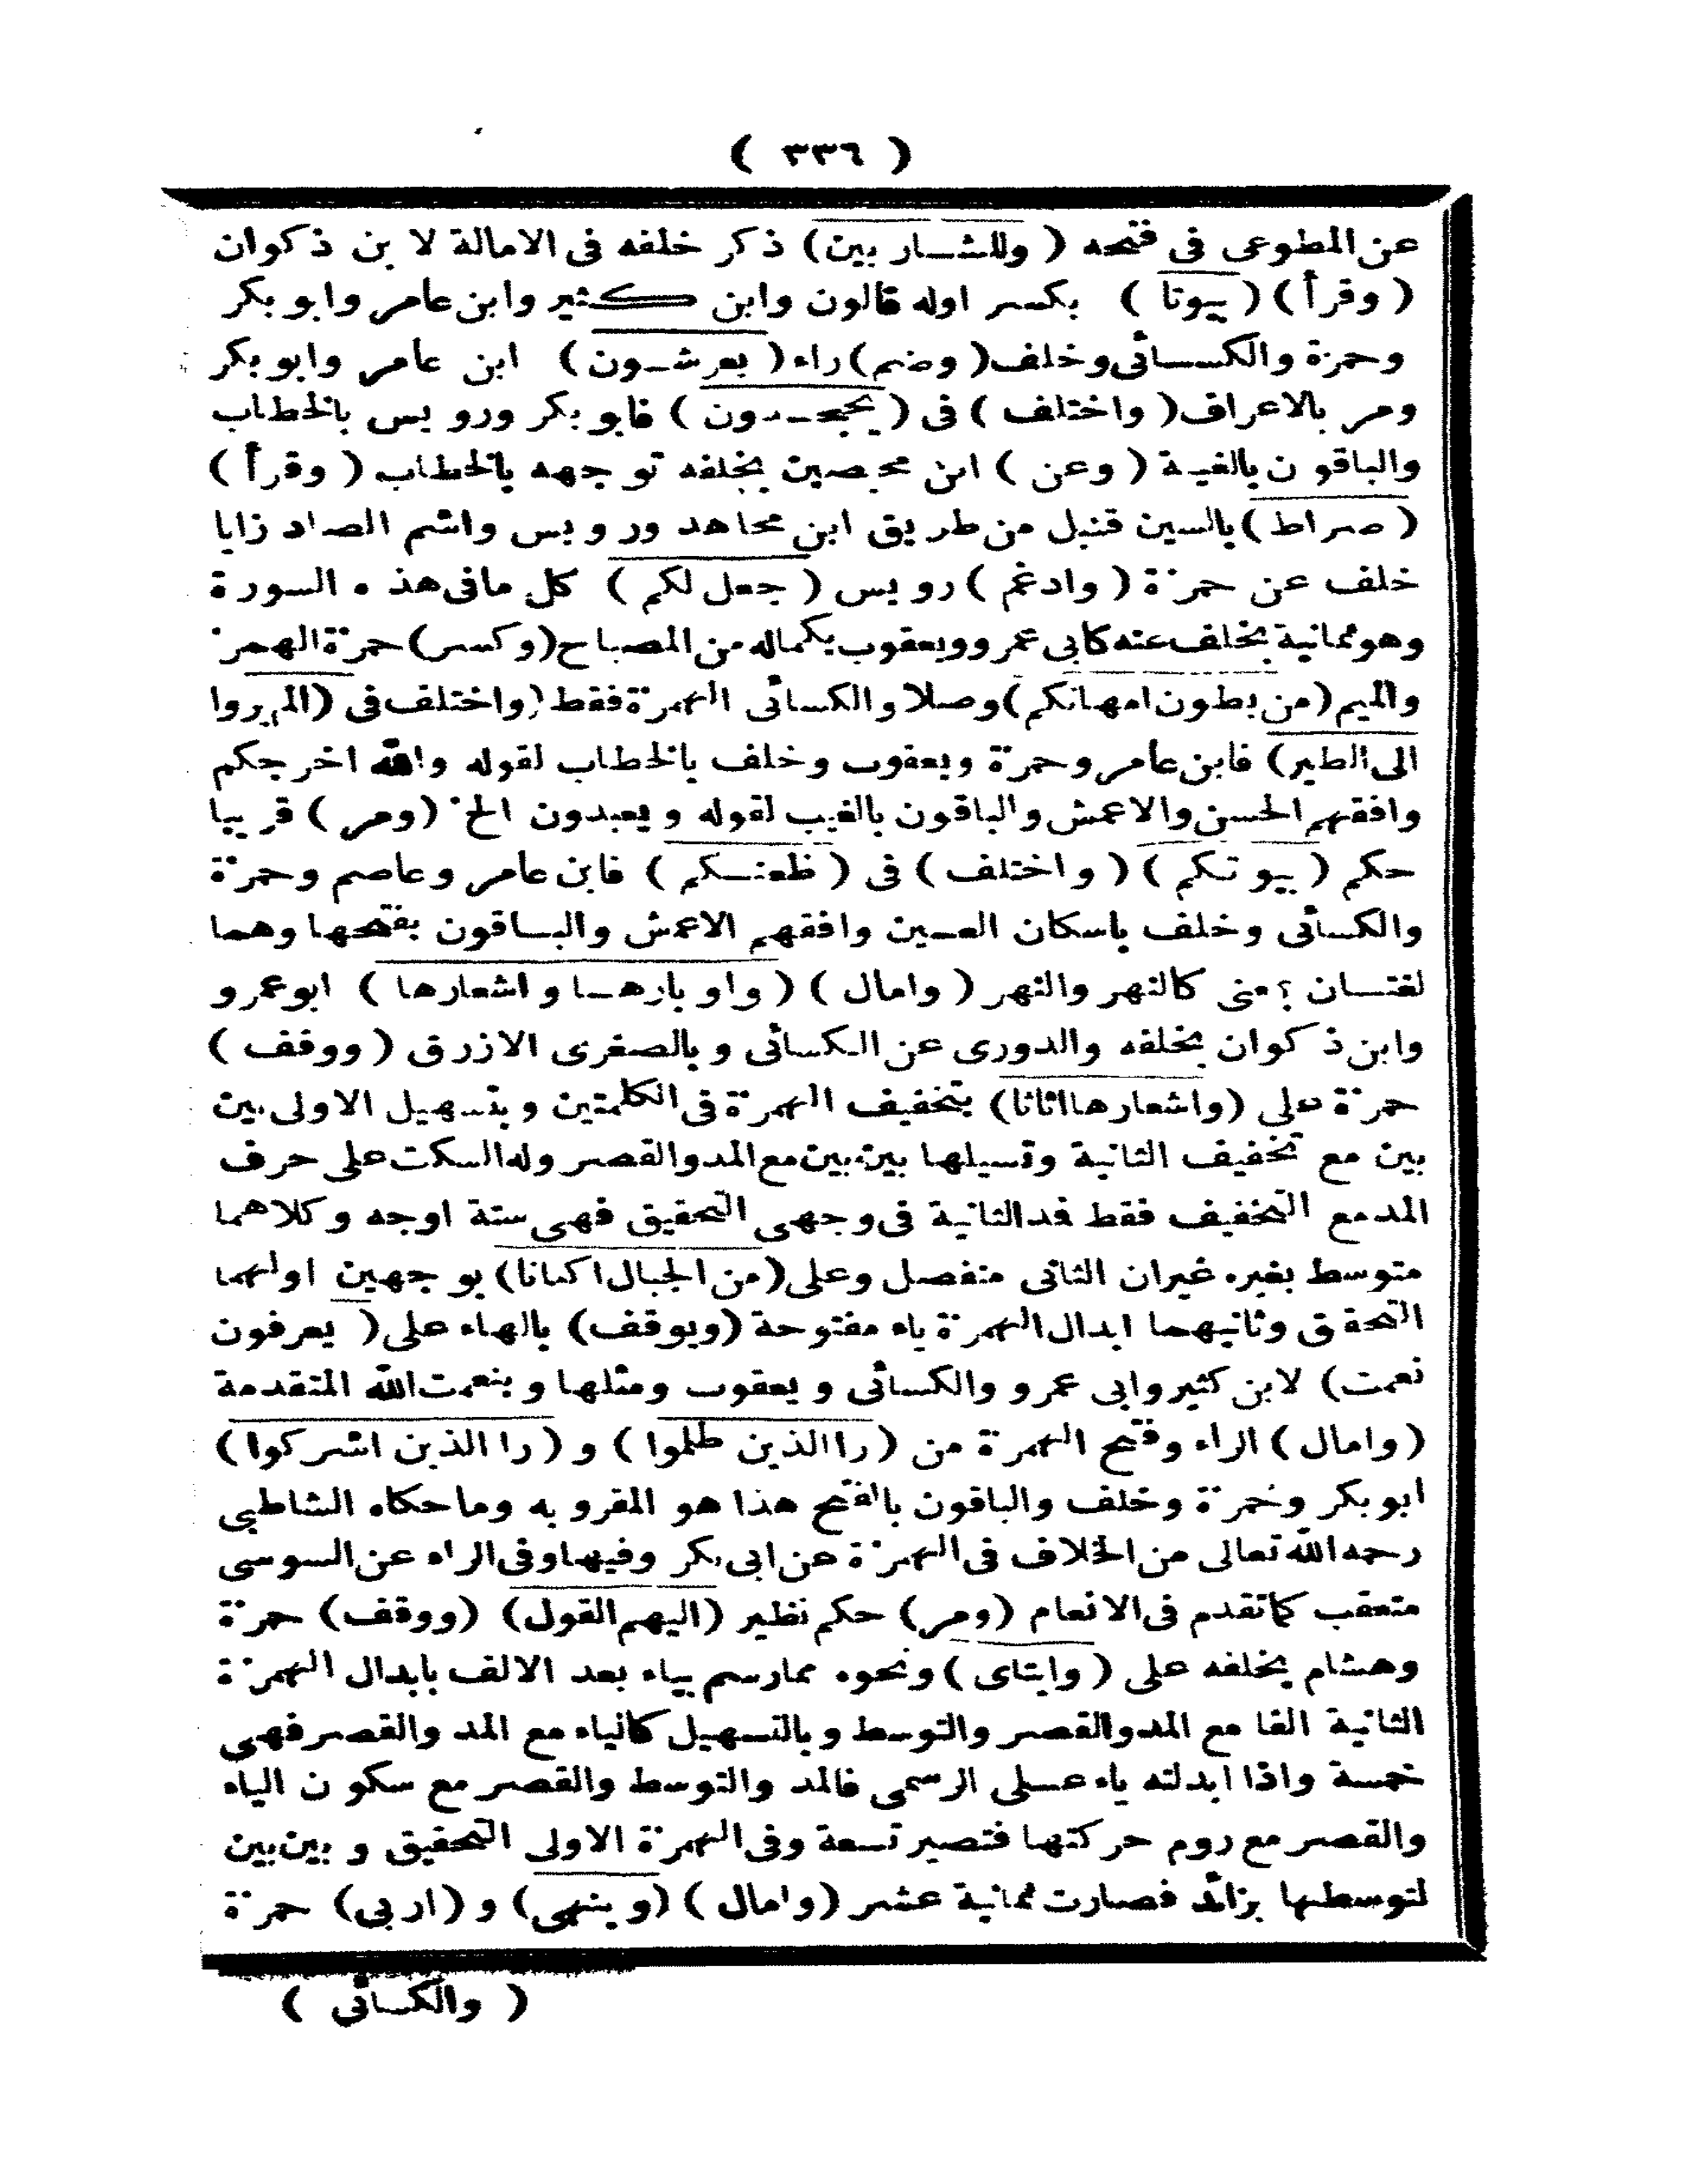 ( ٣٣٦ )
عن المطوعى فى فتحه ( وللشاربين ) ذكر خلفه فى الامالة لابن ذكوان
( وقرأ ) ( بيوتا ) بكسر اوله قالون وابن كثير وابن عامر وابو بكر
وحمزة والكسائى وخلف ( وضم ) راء ( يعرشون ) ابن عامر وابو بكر
ومر بالاعراف ( واختلف ) فى ( يجحدون ) فابو بكر ورويس بالخطاب
والباقون بالغيبة ( وعن ) ابن محيصين بخلفه توجهه بالخطاب ( وقرأ )
( صراط ) بالسين قنبل من طريق ابن مجاهد ورويس واشم الصاد زايا
خلف عن حمزة ( وادغم ) رويس ( جعل لكم ) كل مافى هذه السورة
وهو ثمانية بخلف عنه كابى عمرو ويعقوب بكماله من المصباح ( وكسر ) حمزة الهمز
والميم ( من بطون امهاتكم ) وصلا والكسائى الهمزة فقط ( واختلف فى ( الم يروا
الى الطير ) فابن عامر وحمزة ويعقوب وخلف بالخطاب لقوله والله اخرجكم
وافقهم الحسن والاعمش والباقون بالغيب لقوله ويعبدون الخ ( ومر ) قريبا
حكم ( بيوتكم ) ( واختلف ) فى ( ظعنكم ) فابن عامر وعاصم وحمزة
والكسائى وخلف باسكان العين وافقهم الاعمش والباقون بفتحها وهما
لغتان بمعنى كالنهر والنهر ( وامال ) ( واوبارها واشعارها ) ابو عمرو
وابن ذكوان بخلفه والدورى عن الكسائى وبالصغرى الازرق ( ووقف )
حمزة على ( واشعارها اثاثا ) بتخفيف الهمزة فى الكلمتين وبتسهيل الاولى بين
بين مع تخفيف الثانية وتسيلها بين بين مع المد والقصر وله السكت على حرف
المد مع التخفيف فقط فد الثانية فى وجهى التحقيق فهى ستة اوجه وكلاهما
متوسط بغيره غيران الثانى منفصل وعلى ( من الجبال اكنانا ) بوجهين اولهما
التحقق وثانيهما ابدال الهمزة ياء مفتوحة ( ويوقف ) بالهاء على ( يعرفون
نعمت ) لابن كثير وابى عمرو والكسائى ويعقوب ومثلها وبنعمت الله المتقدمة
( وامال ) الراء وفتح الهمزة من ( را الذين ظلموا ) و ( را الذين اشركوا )
ابو بكر وحمزة وخلف والباقون بالفتح هذا هو المقروبه وماحكاه الشاطبى
رحمه الله تعالى من الخلاف فى الهمزة عن ابى بكر وفيها وفى الراء عن السوسى
متعقب كما تقدم فى الانعام ( ومر ) حكم نظير ( اليهم القول ) ( ووقف ) حمزة
وهشام بخلفه على ( وايتاى ) ونحوه ممارسم بياء بعد الالف بابدال الهمزة
الثانية الفا مع المد والقصر والتوسط وبالتسهيل كالياء مع المد والقصر فهى
خمسة واذا ابدلته ياء على الرسمى فالمد والتوسط والقصر مع سكون الياء
والقصر مع روم حركتها فتصير تسعة وفى الهمزة الاولى التحقيق وبين بين
لتوسطها بزائد فصارت ثمانية عشر ( وامال ) ( وينهى ) و ( اربى ) حمزة
( والكسائى )